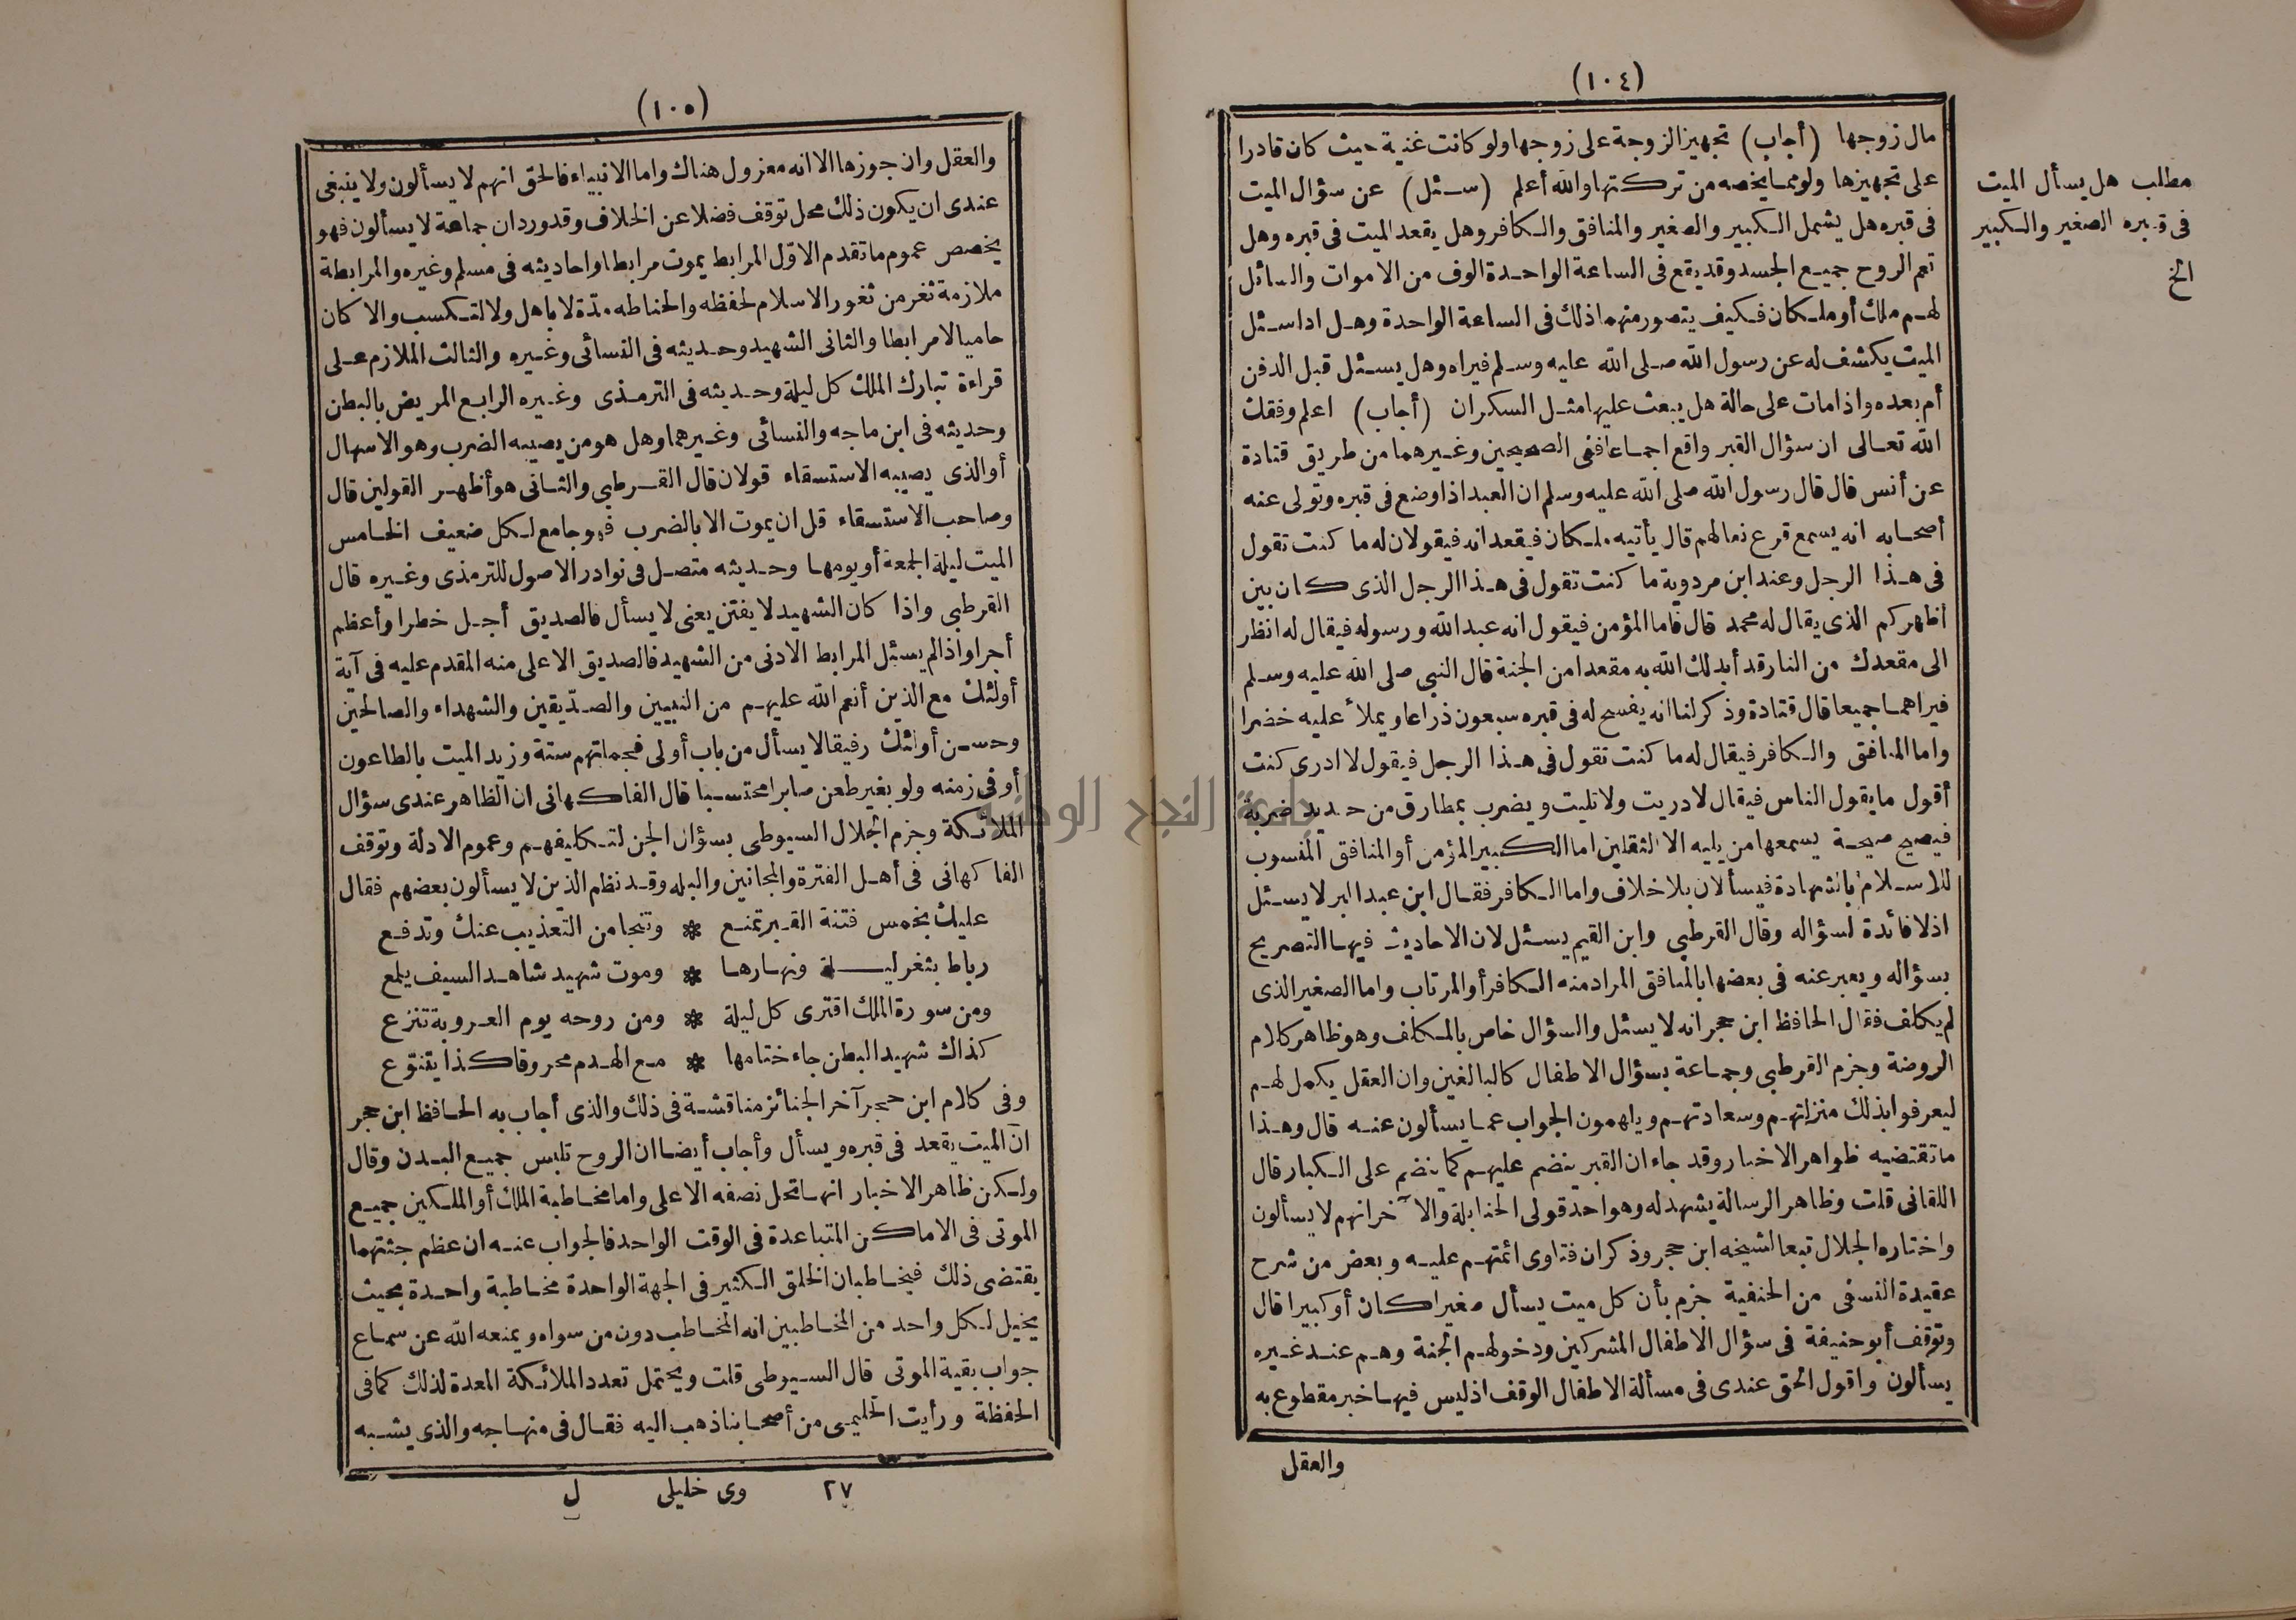 (١٠٤)
مال زوجها (أجاب) تجهيز الزوجة على زوجها ولو كانت غنية حيث كان قادرا
على تجهيزها ولو مما يخصه من تركتها والله أعلم (سئل) عن سؤال الميت
فى قبره هل يشمل الكبير والصغير والمنافق والكافر وهل يقعد الميت فى قبره وهل
تعم الروح جميع الجسد وقد يقع فى الساعة الواحدة الوف من الاموات والسائل
لهم ملك أو ملكان فكيف يتصور منهما ذلك فى الساعة الواحدة وهل اذا سئل
الميت يكشف له عن رسول الله صلى الله عليه وسلم فيراه وهل يسئل قبل الدفن
أم بعده واذا مات على حالة هل يبعث عليها مثل السكران (أجاب) اعلم وفقك
الله تعالى ان سؤال القبر واقع اجماعا ففى الصحيحين وغيرهما من طريق قتادة
عن أنس قال قال رسول الله صلى الله عليه وسلم ان العبد اذا وضع فى قبره وتولى عنه
أصحابه انه يسمع قرع نعالهم قال يأتيه ملكان فيقعدانه فيقولان له ما كنت تقول
فى هذا الرجل وعند ابن مردوية ما كنت تقول فى هذا الرجل الذى كان بين
اظهركم الذى يقال له محمد قال فاما المؤمن فيقول انه عبد الله ورسوله فيقال له انظر
الى مقعدك من النار قد أبدلك الله به مقعدا من الجنة قال النبى صلى الله عليه وسلم
فيراهما جميعا قال قتادة وذكر لنا انه يفسح له فى قبره سبعون ذراعا ويملأ عليه خضرا
واما المنافق والكافر فيقال له ما كنت تقول فى هذا الرجل فيقول لا ادرى كنت
أقول ما يقول الناس فيقال لا دريت ولا تليت ويضرب بمطارق من حديد ضربة
فيصيح صيحة يسمعها من يليه الا الثقلين اما الكبير المؤمن أو المنافق المنسوب
للاسلام بالشهادة فيسألان بلا خلاف واما الكافر فقال ابن عبد البر لا يسئل
اذ لا فائدة لسؤاله وقال القرطبى وابن القيم يسئل لان الاحاديث فيها التصريح
بسؤاله ويعبر عنه فى بعضها بالمنافق المراد منه الكافر أو المرتاب واما الصغير الذى
لم يكلف فقال الحافظ ابن حجر انه لا يسئل والسؤال خاص بالمكلف وهو ظاهر كلام
الروضة وجزم القرطبى وجماعة بسؤال الاطفال كالبالغين وان العقل يكمل لهم
ليعرفوا بذلك منزلتهم وسعادتهم ويلهمون الجواب عما يسألون عنه قال وهذا
ما تقتضيه ظواهر الاخبار وقد جاء ان القبر ينضم عليهم كما ينضم على الكبار قال
اللقانى قلت وظاهر الرسالة يشهد له وهو احد قولى الحنابلة والآخر انهم لا يسألون
واختاره الجلال تبعا لشيخه ابن حجر وذكر ان فتاوى ائمتهم عليه وبعض من شرح
عقيدة النسفى من الحنفية جزم بأن كل ميت يسأل صغيرا كان أو كبيرا قال
وتوقف أبو حنيفة فى سؤال الاطفال المشركين ودخولهم الجنة وهم عند غيره
يسألون واقول الحق عندى فى مسألة الاطفال الوقف اذ ليس فيها خبر مقطوع به
والعقل
مطلب هل يسأل الميت
فى قبره الصغير والكبير
الخ
(١٠٥)
والعقل وان جوزها الا انه معزول هناك واما الانبياء فالحق انهم لا يسألون ولا ينبغى
عندى ان يكون ذلك محل توقف فضلا عن الخلاف وقد ورد ان جماعة لا يسألون فهو
يخصص عموم ما تقدم الاوّل المرابط يموت مرابطا واحاديثه فى مسلم وغيره والمرابطة
ملازمة ثغر من ثغور الاسلام لحفظه والحناطه مدّة لا باهل ولا لتكسب والا كان
حاميا لا مرابطا والثانى الشهيد وحديثه فى النسائى وغيره والثالث الملازم على
قراءة تبارك الملك كل ليلة وحديثه فى الترمذى وغيره الرابع المريض بالبطن
وحديثه فى ابن ماجه والنسائى وغيرهما وهل هو من يصيبه الضرب وهو الاسهال
أو الذى يصيبه الاستسقاء قولان قال القرطبى والثانى هو أظهر القولين قال
وصاحب الاستسقاء قل ان يموت الا بالضرب فهو جامع لكل ضعيف الخامس
الميت ليلة الجمعة أو يومها وحديثه متصل فى نوادر الاصول للترمذى وغيره قال
القرطبى واذا كان الشهيد لا يفتن يعنى لا يسأل فالصديق أجل خطرا وأعظم
أجرا واذا لم يسئل المرابط الادنى من الشهيد فالصديق الاعلى منه المقدم عليه فى آية
أولئك مع الذين أنعم الله عليهم من النبيين والصدّيقين والشهداء والصالحين
وحسن أولئك رفيقا لا يسأل من باب أولى فجملتهم ستة وزيد الميت بالطاعون
أو فى زمنه ولو بغير طعن صابرا محتسبا قال الفاكهانى ان الظاهر عندى سؤال
الملائكة وجزم الجلال السيوطى بسؤال الجن لتكليفهم وعموم الادلة وتوقف
الفاكهانى فى أهل الفترة والمجانين والبله وقد نظم الذين لا يسألون بعضهم فقال
عليك بخمس فتنة القبر تمنع * وتنجا من التعذيب عنك وتدفع
رباط بثغر ليلة ونهارها * وموت شهيد شاهد السيف يلمع
ومن سورة الملك اقترى كل ليلة * ومن روحه يوم العروبة تنزع
كذاك شهيد البطن جاء ختامها * مع الهدم محروقا كذا يتنوّع
وفى كلام ابن حجر آخر الجنائز مناقشة فى ذلك والذى أجاب به الحافظ ابن حجر
انّ الميت يقعد فى قبره ويسأل وأجاب أيضا ان الروح تلبس جميع البدن وقال
ولكن ظاهر الاخبار انها تحل نصفه الاعلى واما مخاطبة الملك أو الملكين جميع
الموتى فى الاماكن المتباعدة فى الوقت الواحد فالجواب عنه ان عظم جثتهما
يقتضى ذلك فيخاطبان الخلق الكثير فى الجهة الواحدة مخاطبة واحدة بحيث
يخيل لكل واحد من المخاطبين انه المخاطب دون من سواه ويمنعه الله عن سماع
جواب بقية الموتى قال السيوطى قلت ويحتمل تعدد الملائكة المعدة لذلك كما فى
الحفظة ورأيت الحليمى من أصحابنا ذهب اليه فقال فى منهاجه والذى يشبه
٢٧ وى خليلى ل
جامعة النجاح الوطنية